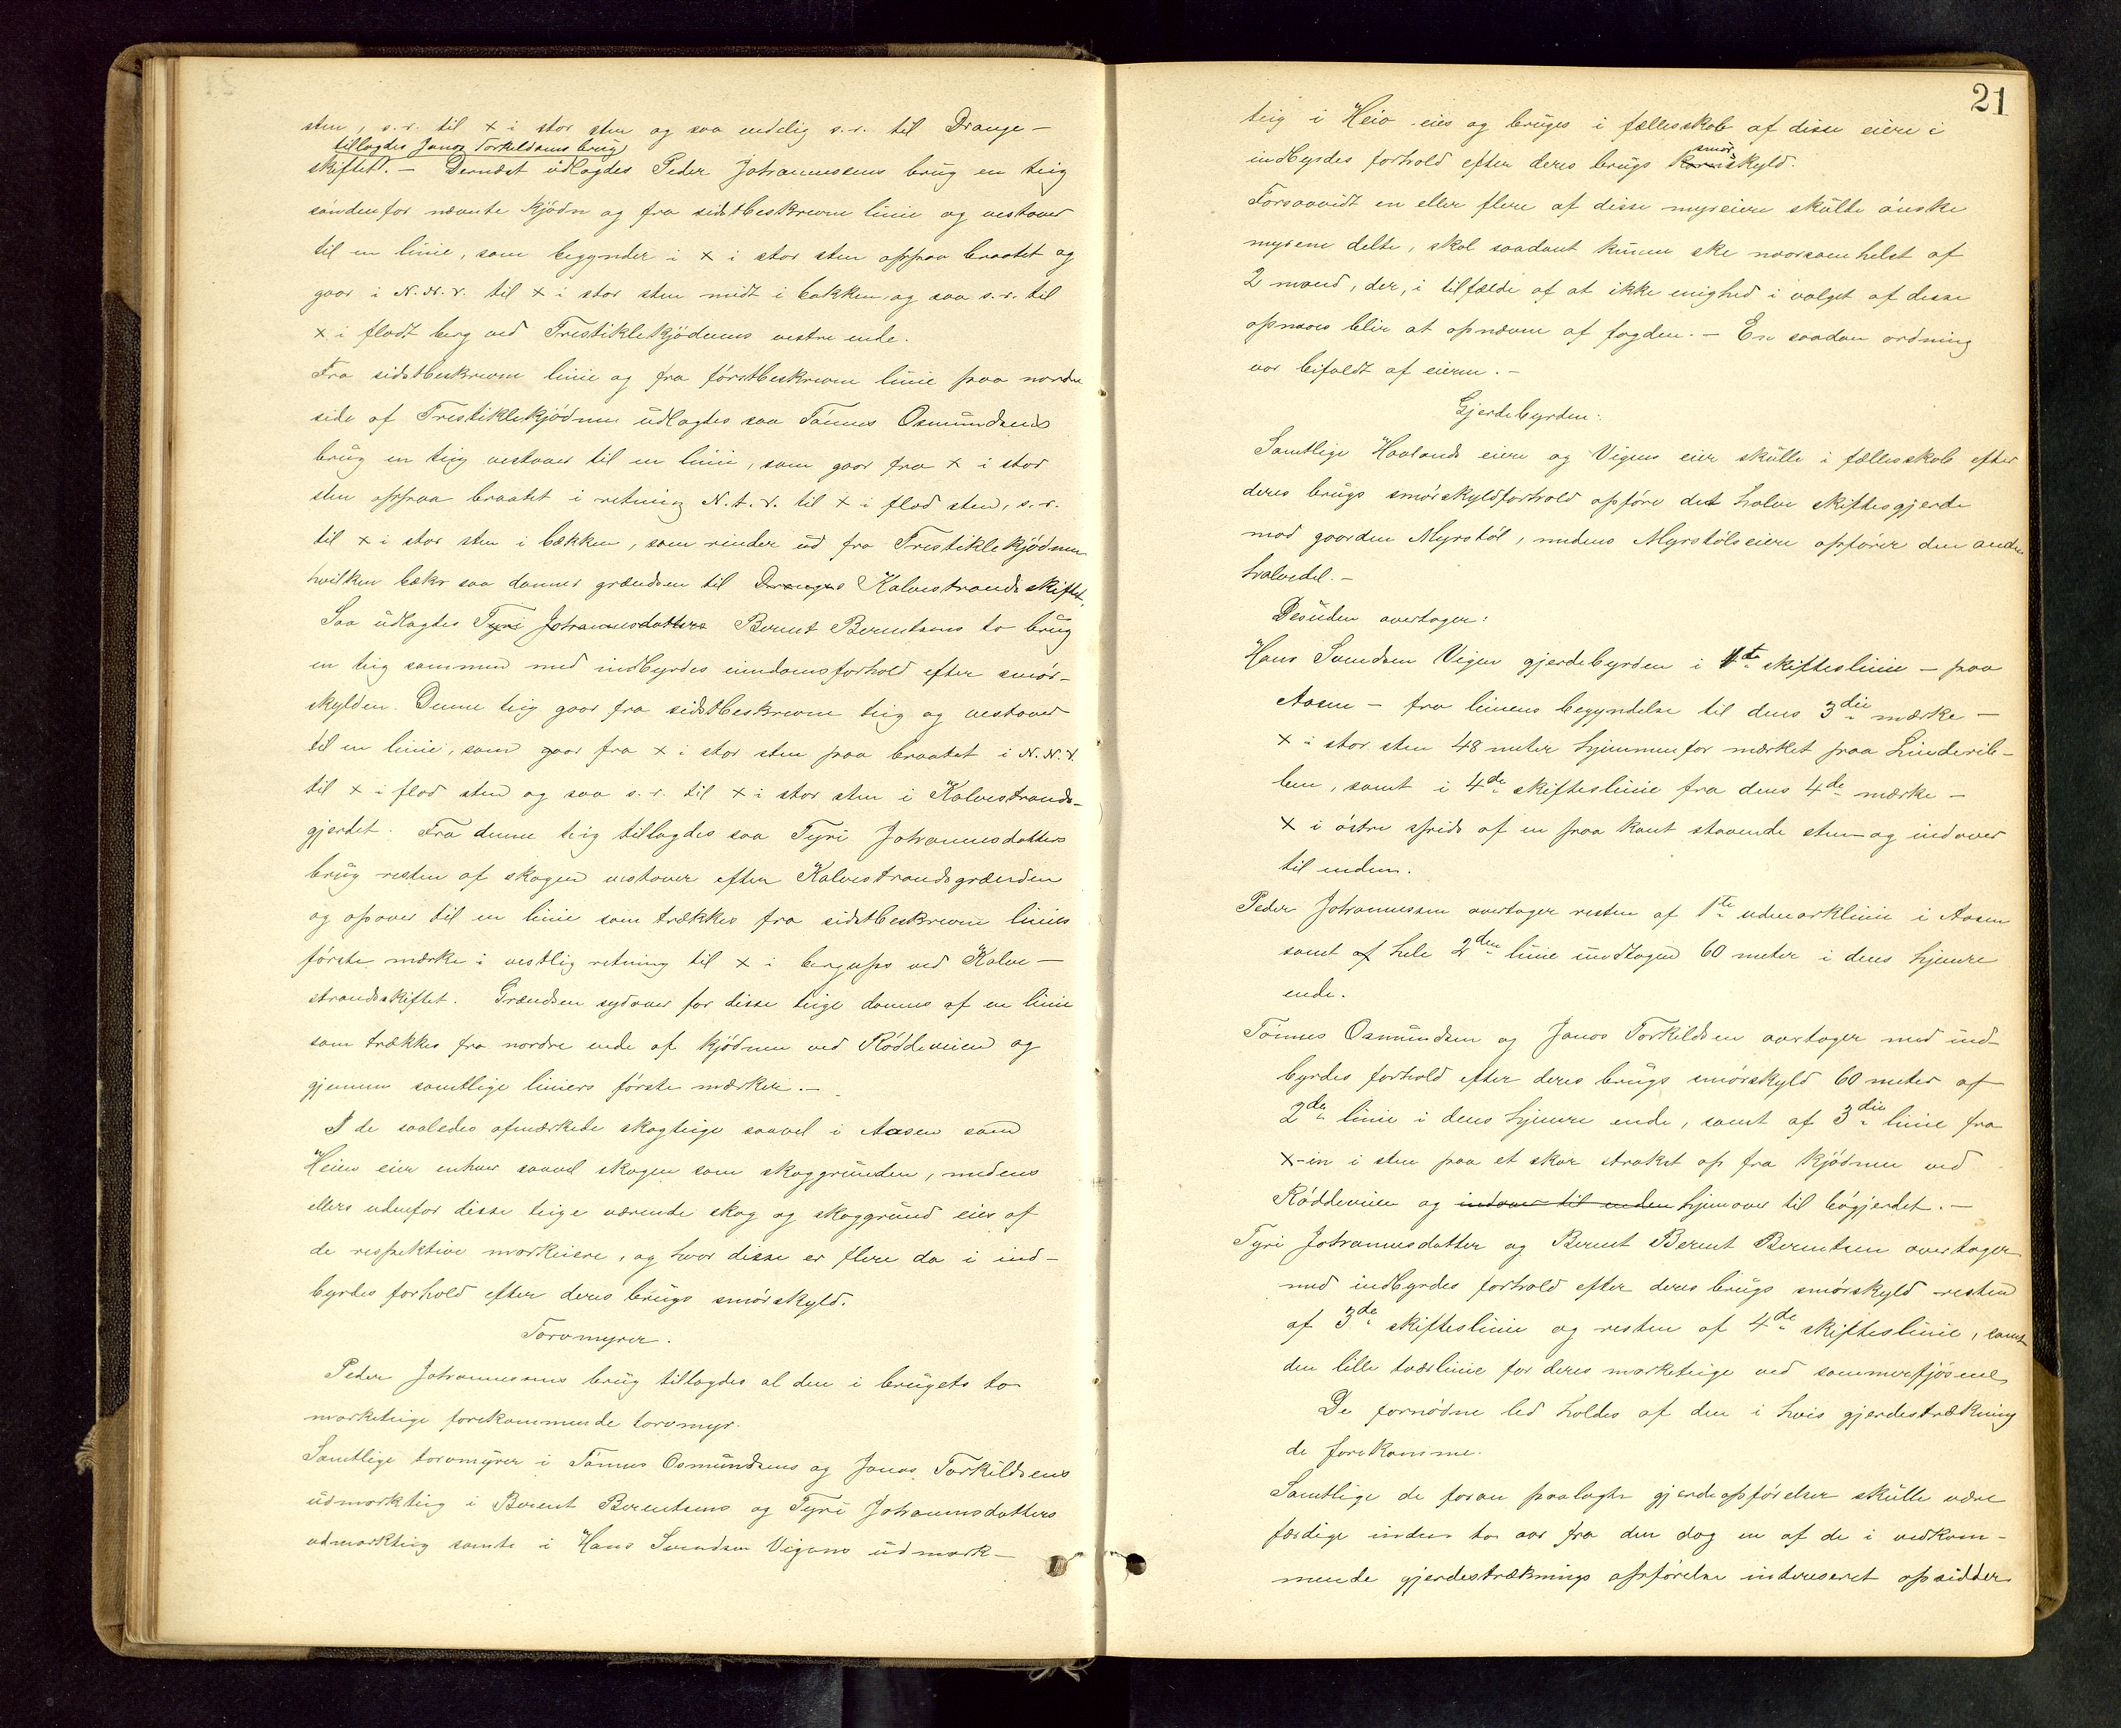 sten, s. r. til × i stor sten og saa endelig s. r. til Drange-
tillagdes Janos Torkeldsens brug
skiftet. — Dernæst udlagdes Peder Johannessens brug en teig
søndenfor nævnte kjødn og fra sidstbeskrevne linie og vestover
til en linie, som begynder i × i stor sten oppaa braatet og
gaar i N. N. V. til × i stor sten midt i bakken og saa s. r. til
× i fladt berg ved Trestiklekjødnens vestre ende.
Fra sidstbeskrevne linie og fra førstbeskrevne linie paa nordre
side af Trestiklekjødnen udlagdes saa Tønnes Osmundsens
brug en teig vestover til en linie, som gaar fra × i stor
sten oppaa braatet i retning N. t. V. til × i flad sten, s. r.
til × i stor sten i bækken, som rinder ud fra Trestiklekjødnen
hvilken bæk saa danner grændsen til Dranges Kalvestrandsskiftet.
Saa udlagdes Tyri Johannesdatters Berent Berentsens to brug
en teig sammen med indbyrdes eiendomsforhold efter smør-
skylden. Denne teig gaar fra sidstbeskrevne teig og vestover
til en linie, som gaar fra × i stor sten paa braatet i N. N. V.
til × i flad sten og saa s. r. til × i stor sten i Kalvestrands-
gjerdet. Fra denne teig tillagdes saa Tyri Johannesdatters
brug resten af skogen vestover efter Kalvestrandsgrændsen
og opover til en linie som trækkes fra sidstbeskrevne linies
første mærke i vestlig retning til × i bergnps ved Kalve-
strandsskiftet. Grændsen sydover for disse teige dannes af en linie
som trækkes fra nordre ende af kjødnen ved Røddeveien og
gjennem samtlige liniers første mærker. —
I de saaledes afmærkede skogteige saavel i Aasen som
Heien eier enhver saavel skogen som skoggrunden, medens
ellers udenfor disse teige værende skog og skoggrund eies af
de respektive markeiere, og hvor disse er flere da i ind-
byrdes forhold efter deres brugs smørskyld.
Torvmyrer.
Peder Johannessens brug tillagdes al den i brugets to
markteige forekommende torvmyr.
Samtlige torvmyrer i Tønnes Osmundsens og Janos Torkildsens
udmarkteig i Berent Berentsens og Tyri Johannesdatters
udmarkteig samt i Hans Svendsen Vigens udmark-
21
teig i Heia eies og bruges i fællesskab af disse eiere i
indbyrdes forhold efter deres brugs kornskyld.
smør
Forsaavidt en eller flere af disse myreiere skulde ønske
myrene delte, skal saadant kunne ske naarsomhelst af
2 mænd, der, i tilfælde af at ikke enighed i valget af disse
opnaaes blir at opnævne af fogden. — En saadan ordning
var bifaldt af eierne. —
Gjerdebyrden:
Samtlige Haalands eiere og Vigens eier skulle i fællesskab efter
deres brugs smørskyldforhold opføre det halve skiftesgjerde
mod gaarden Myrstøl, medens Myrstøls eiere opfører den anden
halvedel. —
Desuden overtager:
Hans Svendsen Vigen gjerdebyrden i 1ste skifteslinie — paa
Aasen — fra liniens begyndelse til dens 3die mærke —
× i stor sten 48 meter hjemmenfor mærket paa Linderib-
ben, samt i 4de skifteslinie fra dens 4de mærke —
× i østre spids af en paa kant staaende sten og indover
til enden.
Peder Johannessen overtager resten af 1ste udmarklinie i Aasen
samt af hele 2den linie undtagen 60 meter i dens hjemre
ende.
Tønnes Osmundsen og Janos Torkildsen overtager med ind-
byrdes forhold efter deres brugs smørskyld 60 meter af
2den linie i dens hjemre ende, samt af 3die linie fra
×-en i sten paa et skar strakst op fra kjødnen ved
Røddeveien og indover til enden hjemover til bøgjerdet. —
Tyri Johannesdatter og Berent Berent Berentsen overtager
med indbyrdes forhold efter deres brugs smørskyld resten
af 3de skifteslinie og resten af 4de skifteslinie, samt
den lille tværlinie for deres markteige ved sommerfjøsene.
De fornødne led holdes af den i hvis gjerdestrækning
de forekomme.
Samtlige de foran paalagte gjerdeopførelser skulle være
færdige inden to aar fra den dag en af de i vedkom-
mende gjerdestræknings opførelse interesseret opsidder